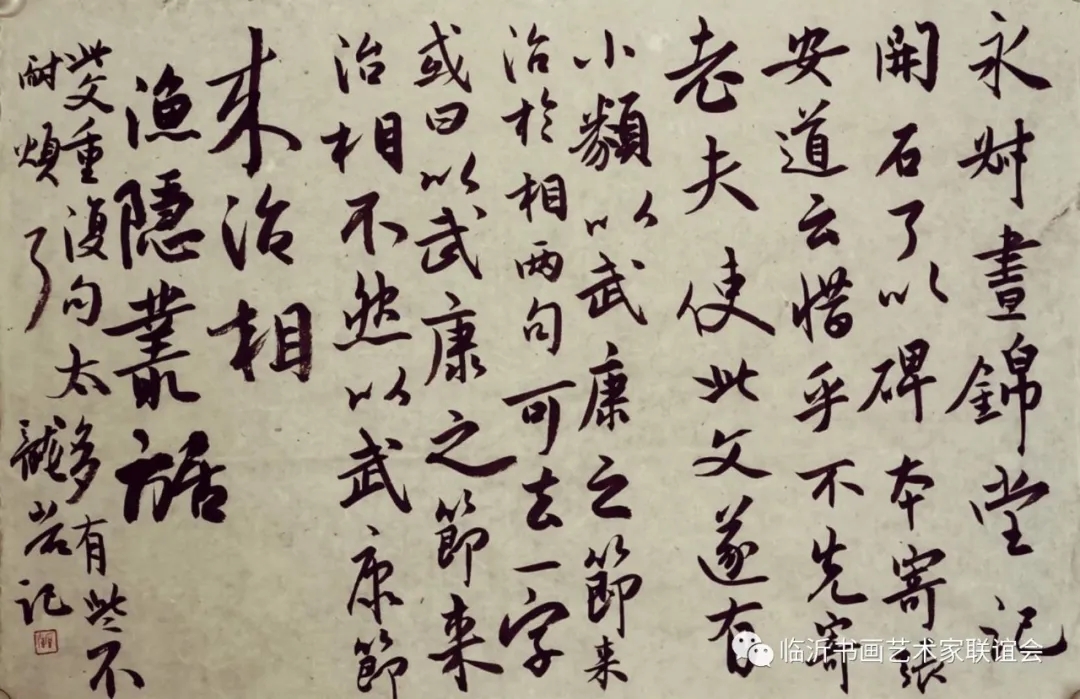 永叔晝錦堂記
開石了以碑本寄張
安道云惜乎不先寄
老夫使此文遂有
小纇以武康之節来
治於相两句可去一字
或曰以武康之節来
治相不然以武康節
来治相
漁隱叢話
此文重復句太多有些不
耐煩了 龍岩記
临沂书画艺术家联谊会